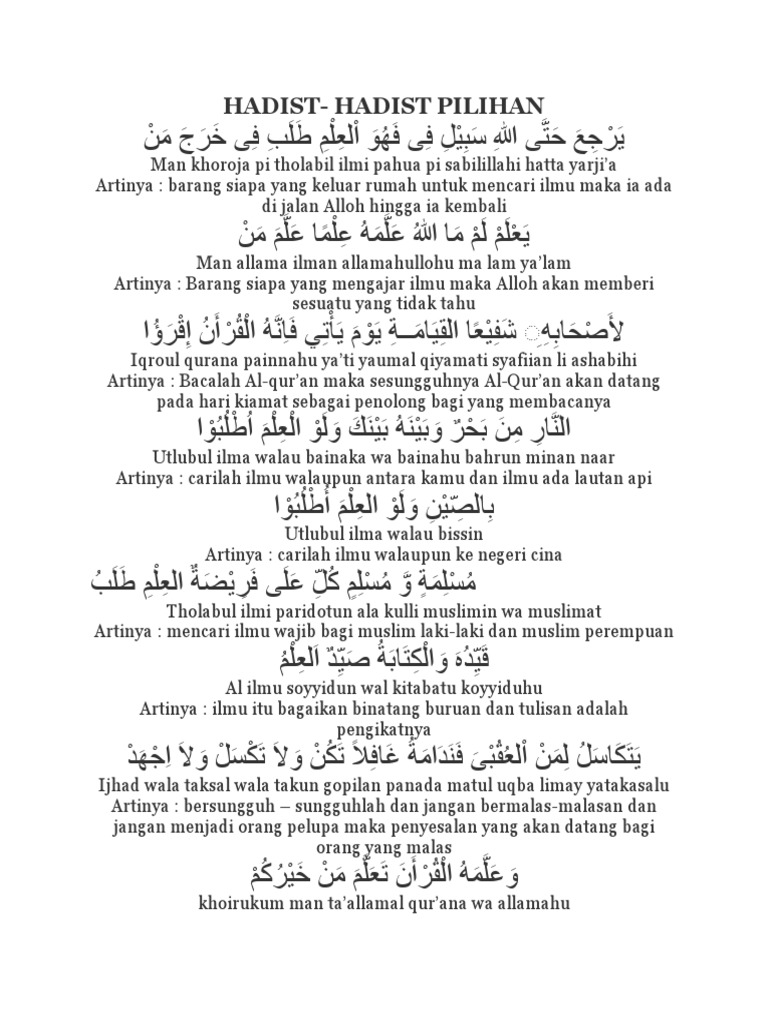 HADIST- HADIST PILIHAN
يَرْجِعَ حَتَّى اللهِ سَبِيْلِ فِى فَهُوَ اْلعِلْمِ طَلَبِ فِى خَرَجَ مَنْ
Man khoroja pi tholabil ilmi pahua pi sabilillahi hatta yarji’a
Artinya : barang siapa yang keluar rumah untuk mencari ilmu maka ia ada
di jalan Alloh hingga ia kembali
يَعْلَمْ لَمْ مَا اللهُ عَلَّمَهُ عِلْمًا عَلَّمَ مَنْ
Man allama ilman allamahullohu ma lam ya’lam
Artinya : Barang siapa yang mengajar ilmu maka Alloh akan memberi
sesuatu yang tidak tahu
لأَصْحَابِهِ ِ شَفِيْعًا القِيَامَـــةِ يَوْمَ يَأْتِي فَاِنَّهُ الْقُرْأَنُ إِقْرَؤُا
Iqroul qurana painnahu ya’ti yaumal qiyamati syafiian li ashabihi
Artinya : Bacalah Al-qur’an maka sesungguhnya Al-Qur’an akan datang
pada hari kiamat sebagai penolong bagi yang membacanya
النَّارِ مِنَ بَحْرٌ وَبَيْنَهُ بَيْنَكَ وَلَوْ الْعِلْمَ اُطْلُبُوْا
Utlubul ilma walau bainaka wa bainahu bahrun minan naar
Artinya : carilah ilmu walaupun antara kamu dan ilmu ada lautan api
بِالصِّيْنِ وَلَوْ العِلْمَ أُطْلُبُوْا
Utlubul ilma walau bissin
Artinya : carilah ilmu walaupun ke negeri cina
مُسْلِمَةٍ وَّ مُسْلِمٍ كُلِّ عَلَى فَرِيْضَةٌ العِلْمِ طَلَبُ
Tholabul ilmi paridotun ala kulli muslimin wa muslimat
Artinya : mencari ilmu wajib bagi muslim laki-laki dan muslim perempuan
قَيِّدُهَ وَالْكِتَابَةُ صَيِّدٌ اَلعِلْمُ
Al ilmu soyyidun wal kitabatu koyyiduhu
Artinya : ilmu itu bagaikan binatang buruan dan tulisan adalah
pengikatnya
يَتَكَاسَلُ لِمَنْ اْلعُقْبىَ فَنَدَامَةُ غَافِلاً تَكُنْ وَلاَ تَكْسَلْ وَلاَ اِجْهَدْ
Ijhad wala taksal wala takun gopilan panada matul uqba limay yatakasalu
Artinya : bersungguh – sungguhlah dan jangan bermalas-malasan dan
jangan menjadi orang pelupa maka penyesalan yang akan datang bagi
orang yang malas
وَعَلَّمَهُ الْقُرْأَنَ تَعَلَّمَ مَنْ خَيْرُكُمْ
khoirukum man ta’allamal qur’ana wa allamahu